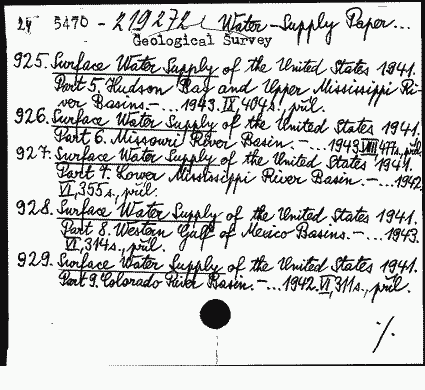 24 5470 - 219272 Water-Supply Paper...
Geological Survey
925. Surface Water Supply of the United States 1941.
Part 5. Hudson Bay and Upper Mississippi Ri-
ver Basins. - ... 1943. IX 404 s., příl.
926. Surface Water Supply of the United States 1941.
Part 6. Missouri River Basin. - ... 1943. VIII 477 s., příl.
927. Surface Water Supply of the United States 1941.
Part 7. Lower Mississippi River Basin. - ... 1942.
VI, 355 s., příl.
928. Surface Water Supply of the United States 1941.
Part 8. Western Gulf of Mexico Basins. - ... 1943.
VI, 314 s., příl.
929. Surface Water Supply of the United States 1941.
Part 9. Colorado River Basin. - ... 1942. VI, 311 s., příl.
./.